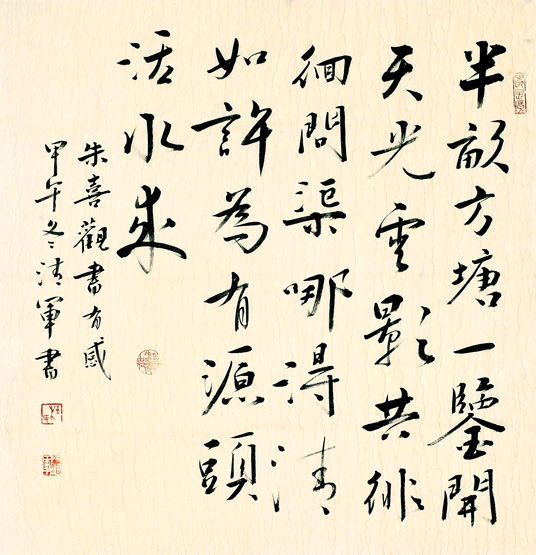 半畝方塘一鑒開
天光雲影共徘
徊問渠哪得清
如許為有源頭
活水來
朱喜觀書有感
甲午冬清軍書